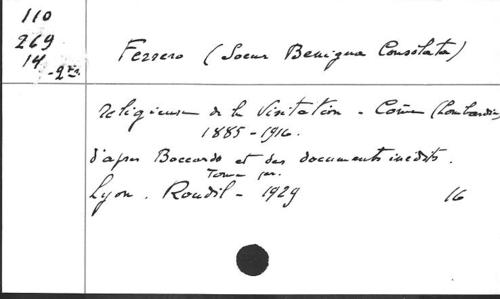 110
269
14
-2 ex.
Ferrero (Soeur Benigna Consolata)
religieuse de la Visitation - Côme (Lombardie)
1885-1916.
d'après Boccardo et des documents inédits.
Tome 1er.
Lyon. Roudil - 1929 16